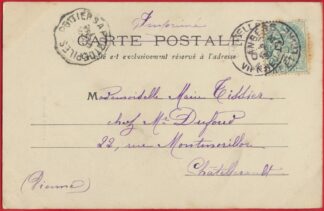 Imprimé
CARTE POSTALE
est exclusivement réservé à l'adresse
Mademoiselle Marie Tissier
chez Mr Dufoud
22, rue Montmorillon
Châtellerault
(Vienne)